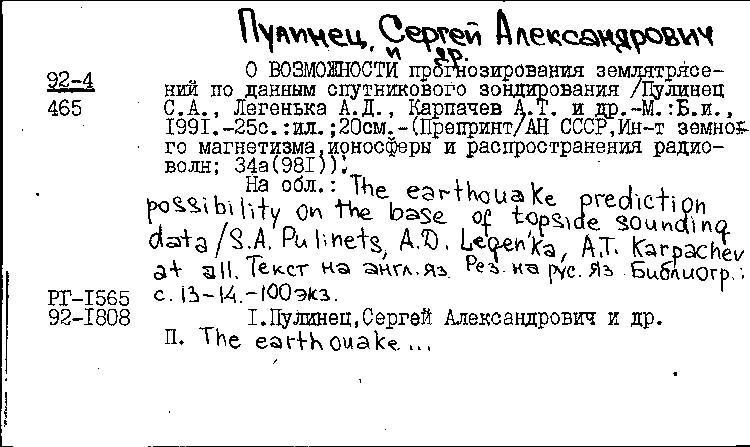 Пулинец, Сергей Александрович
и др.
О ВОЗМОЖНОСТИ прогнозирования землятрясе-
92-4
ний по данным спутникового зондирования /Пулинец
465
С.А., Легенька А.Д., Карпачев А.Т. и др.-М.:Б.и.,
1991.-25с.:ил.;20см.-(Препринт/АН СССР,Ин-т земно-
го магнетизма,ионосферы и распространения радио-
волн; 34а(981)).
На обл.: The earthouake prediction
possibility on the base of topside sounding
data/S.A. Pulinets, A.D. Legen'ka, A.T. Karpachev
at all. Текст на англ.яз. Рез. на рус. яз. Библиогр.:
с. 13-14.-100экз.
РГ-1565
92-1808
I.Пулинец,Сергей Александрович и др.
П. The earthouake...